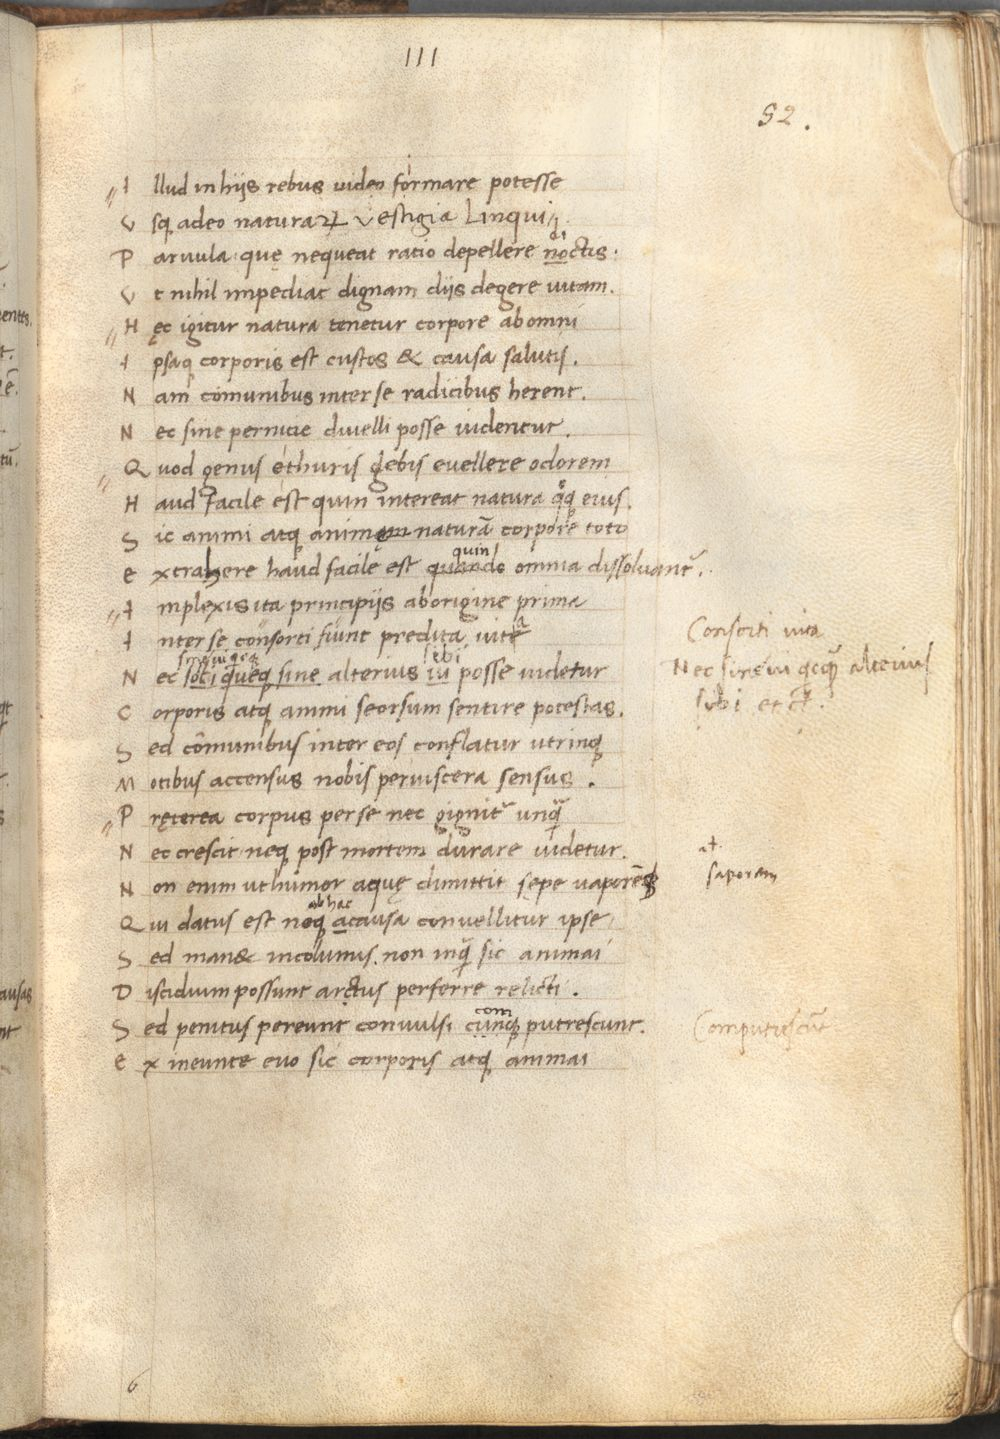 III
52.
I llud in hijs rebus video formare potesse
V sq; adeo naturaꝝ vestigia linqui
P arvula quę nequeat ratio depellere noctis.
V t nihil impediat dignam diis degere vitam.
H ęc igitur natura tenetur corpore ab omni
I psaq; corporis est custos & causa salutis.
N am cōmunibus inter se radicibus herent.
N ec sine pernicie divelli posse videntur.
Q uod genus e thuris glebis evellere odorem
H aud facile est quin intereat natura qq; eius.
S ic animi atq; animę naturā corpore toto
quin
E xtrahere haud facile est quando omnia dissoluant̄.
I mplexis ita principijs ab origine prima
a
I nter se consorti fiunt predita vite
sibi
N ec soci queq; sine alterius iu posse videtur
C orporis atq; animi seorsum sentire potestas.
S ed cōmunibus inter eos conflatur utrinq;
M otibus accensus nobis per viscera sensus.
P ręterea corpus per se nec gignit̄ unq̄
N ec crescit neq; post mortem durare videtur.
N on enim ut humor aquę dimittit sępe vaporē
ab hac
Q ui datus est neq; a causa convellitur ipse
S ed manet incolumis. non inq̄ sic animai
D iscidium possunt artus perferre relicti.
com
S ed penitus pereunt convulsi cunq; putrescunt.
E x ineunte evo sic corporis atq; animai
Consorti vita
Nec sine vi qcq̄ alterius
sibi et c̄.
at.
saporem
Computrescūt
6